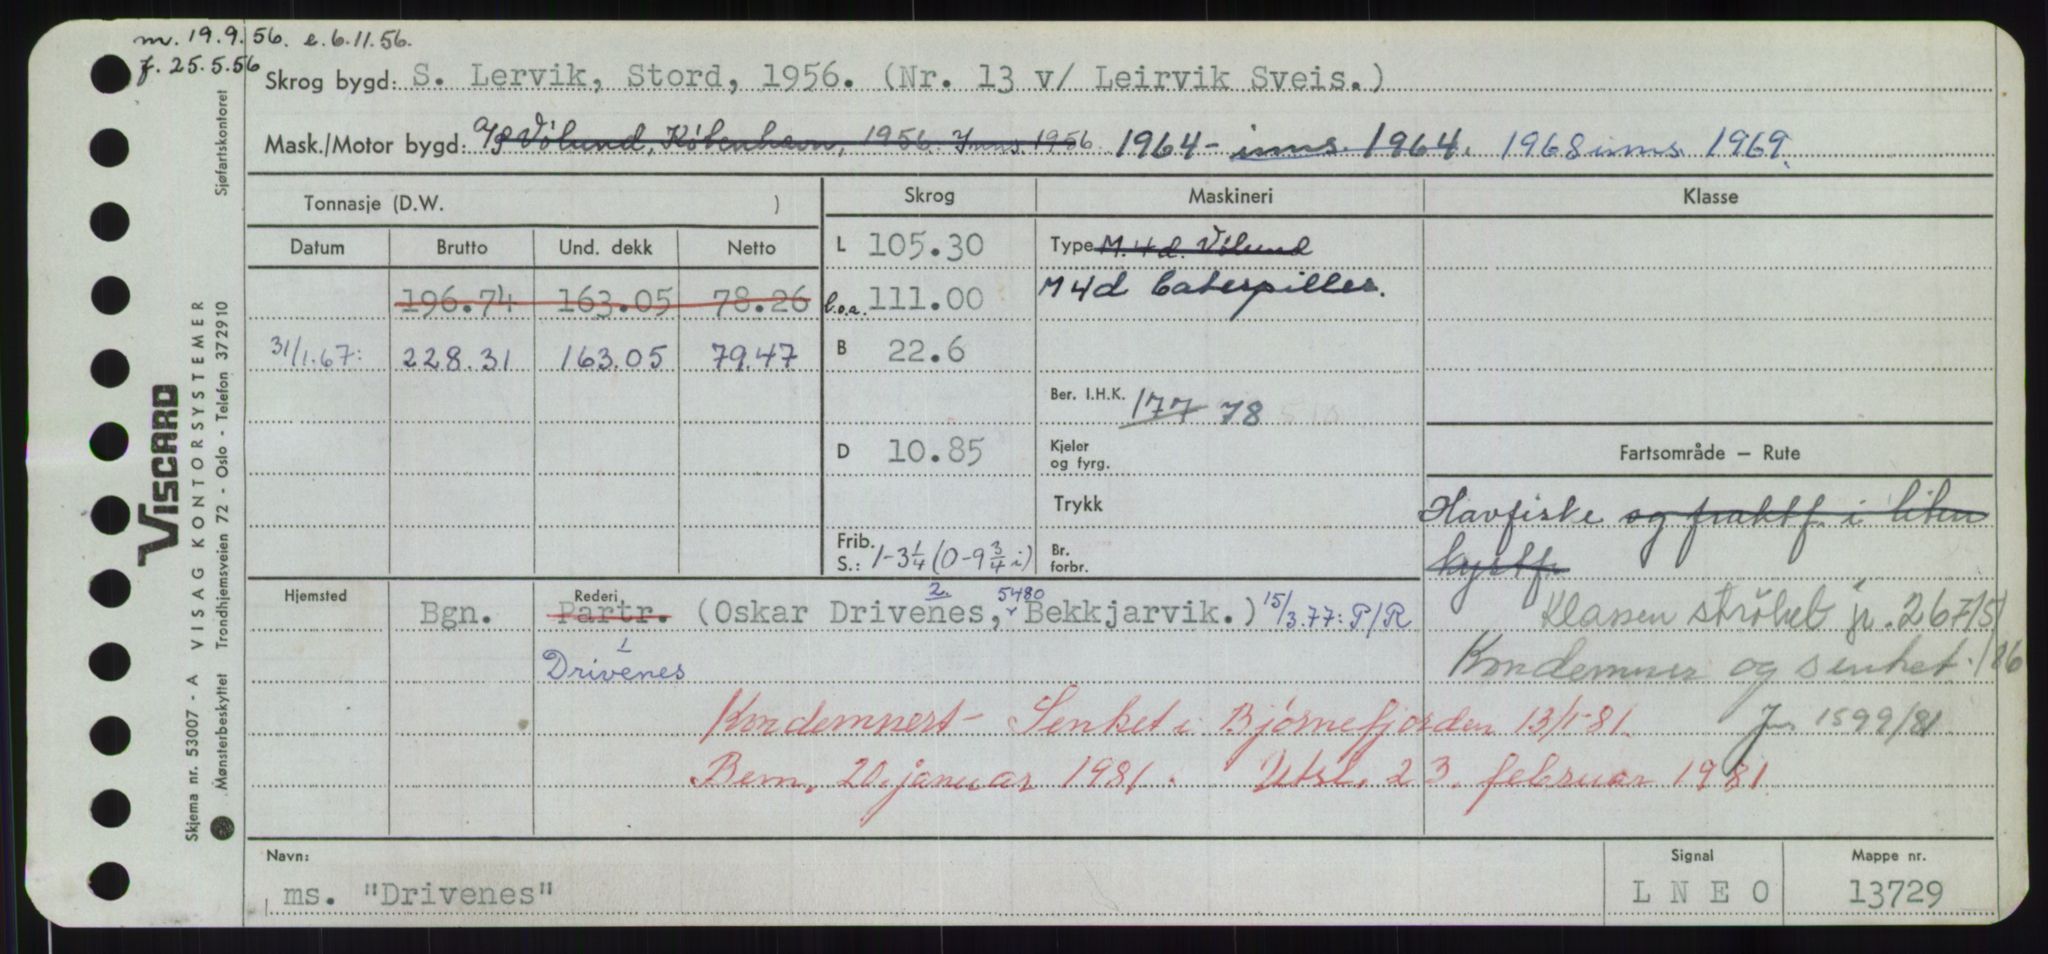 m. 19.9.56. e. 6.11.56.
f. 25.5.56
Skrog bygd: S. Lervik, Stord, 1956. (Nr. 13 v/ Leirvik Sveis.)
Mask./Motor bygd: A/S Völund, København, 1956. Inns. 1956 1964 - inns. 1964. 1968 inns. 1969.
Tonnasje (D.W. ) Skrog Maskineri Klasse
Datum Brutto Und. dekk Netto L 105.30 Type M. 4 d. Völund
196.74 163.05 78.26 l.o.a. 111.00 M 4 d Caterpiller.
31/1.67: 228.31 163.05 79.47 B 22.6
Ber. I.H.K. 177 78 510
D 10.85 Kjeler og fyrg. Fartsområde – Rute
Trykk Havfiske og fraktf. i liten
Frib. S.: 1-3 1/4 (0-9 3/4 i) Br. forbr. kystf.
Hjemsted Rederi 2. 5480
Bgn. Partr. (Oskar Drivenes, Bekkjarvik.) 15/3.77: P/R Klassen strøket jr. 267/51
1
Drivenes Kondemner og senket. /86
Kondemnert – Senket i Bjørnefjorden 13/1-81. Jr. 1599/81
Bem. 20. januar 1981. Utsl. 23. februar 1981
Navn: Signal Mappe nr.
ms. "Drivenes" L N E O 13729
VISCARD
VISAG KONTORSYSTEMER
Skjema nr. 53007 - A
Mønsterbeskyttet Trondhjemsveien 72 - Oslo - Telefon 372910
Sjøfartskontoret